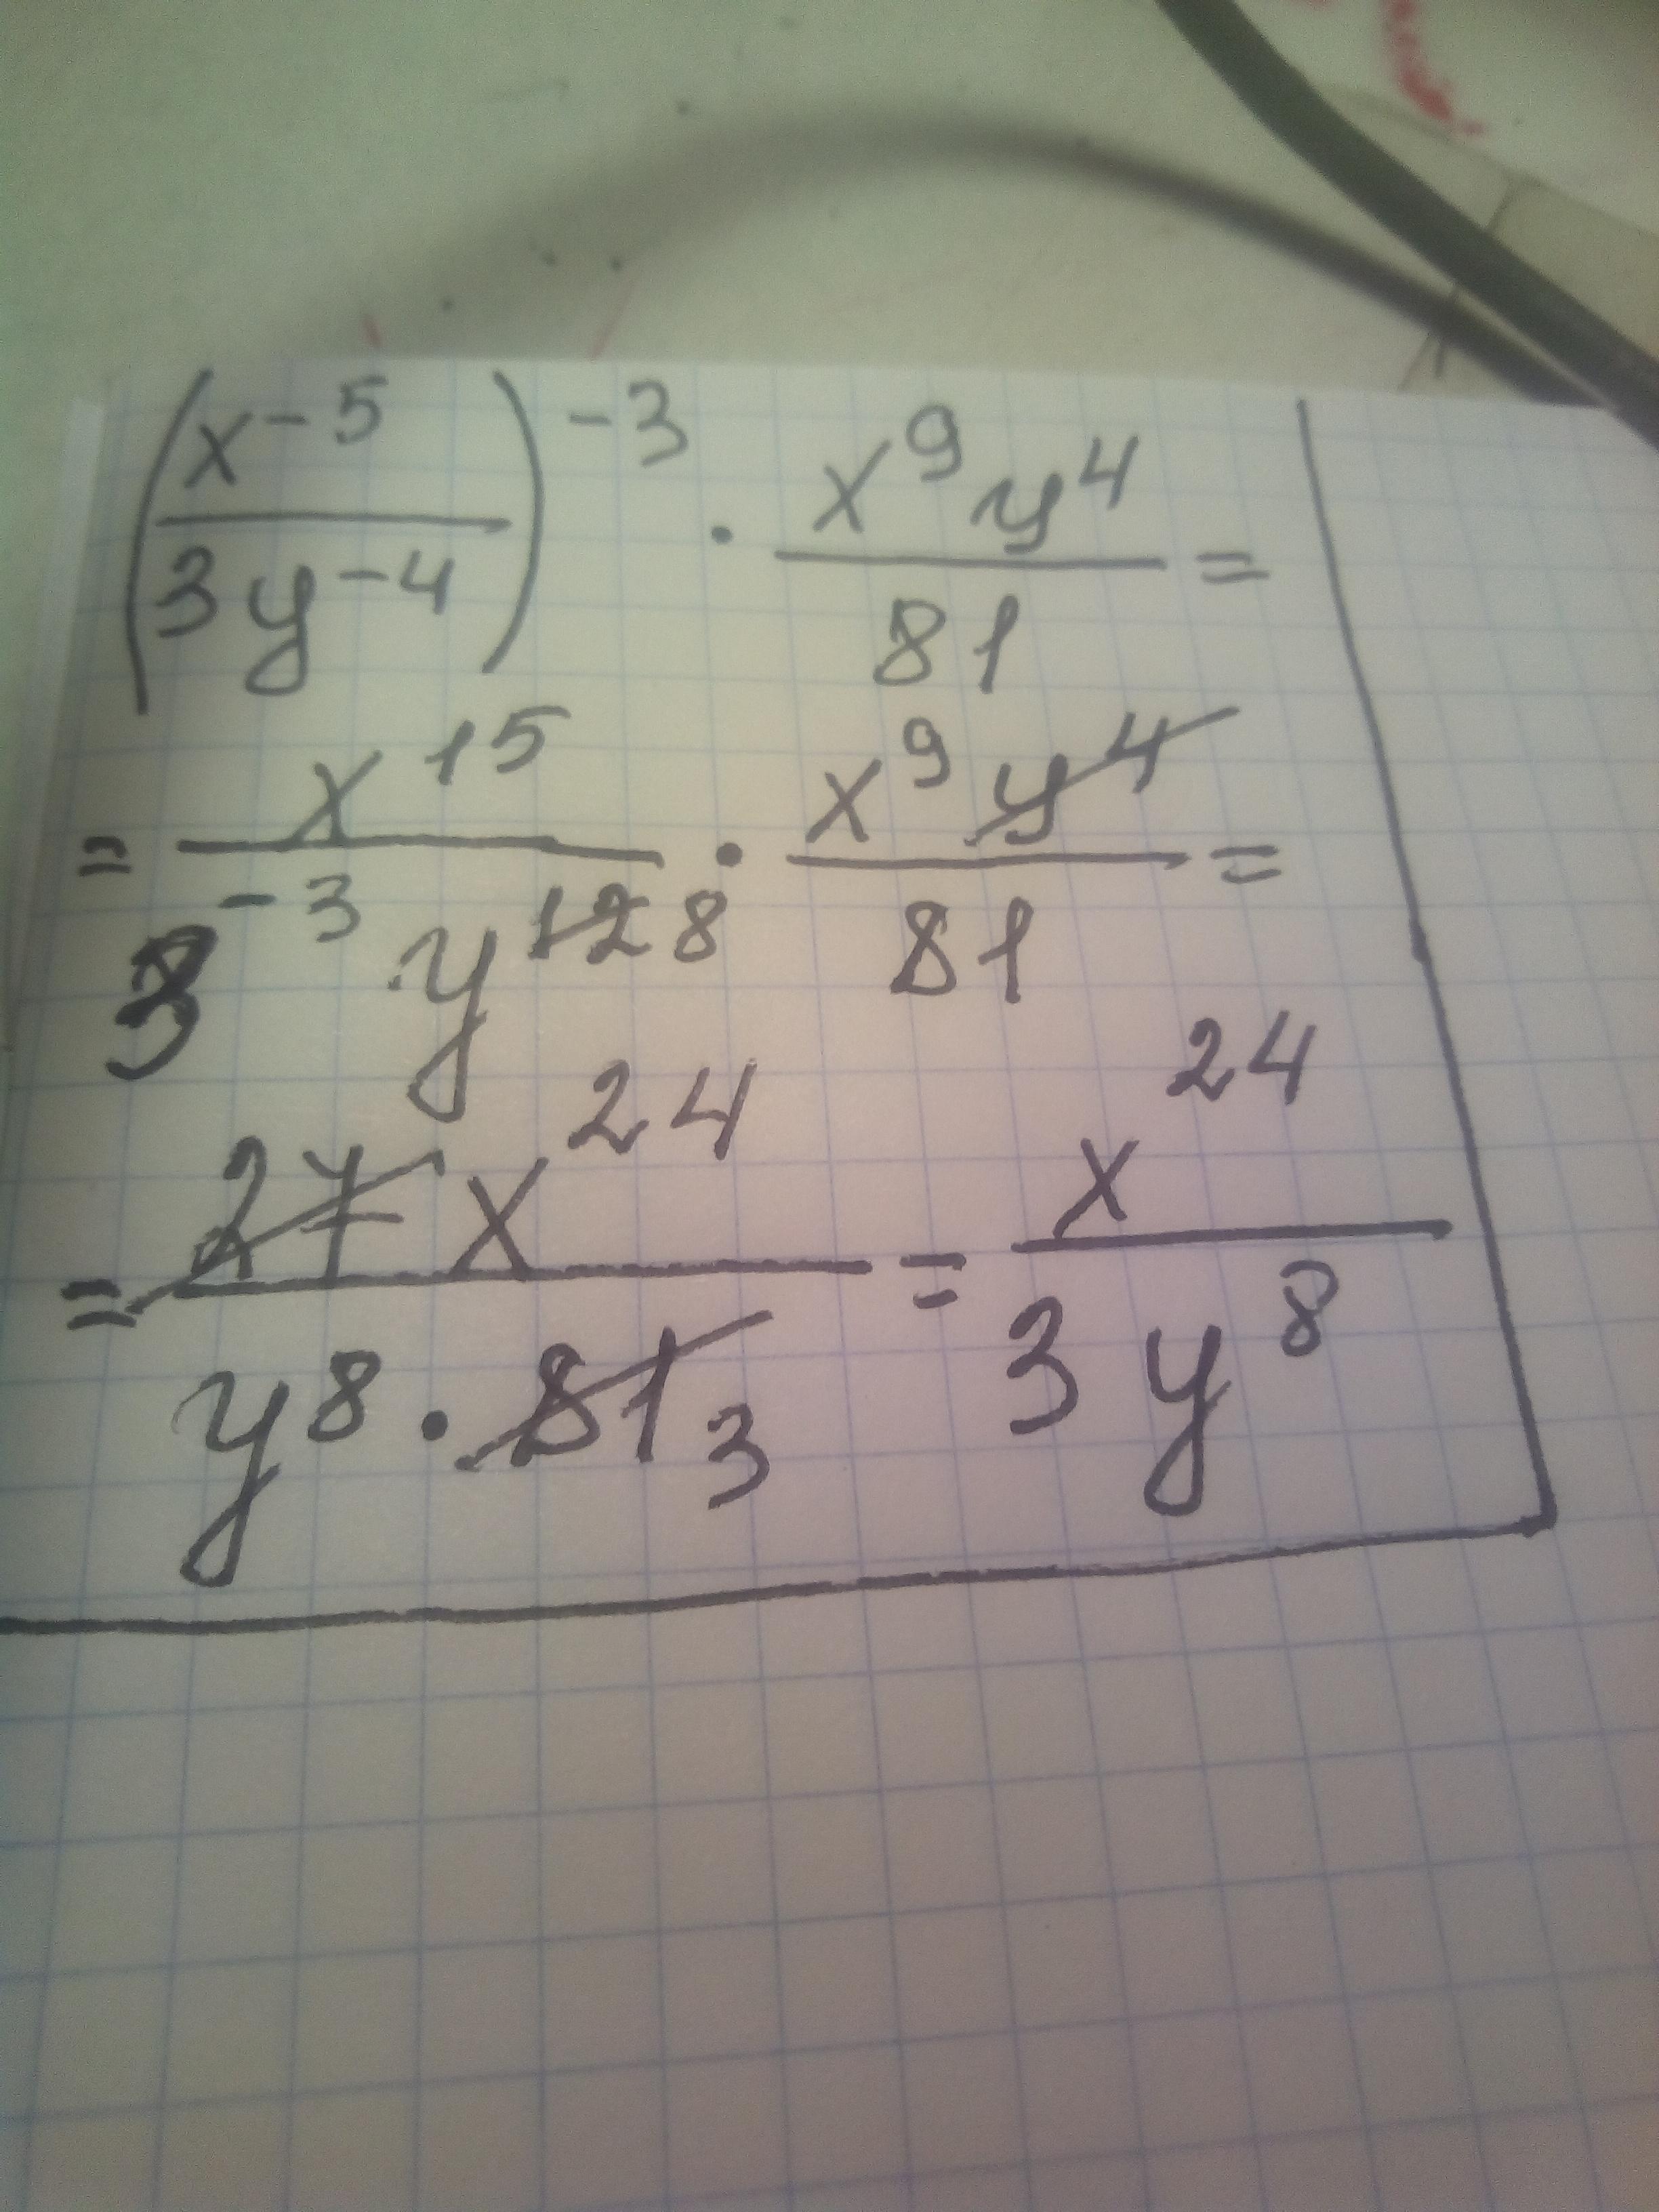 (x⁻⁵/3y⁻⁴)⁻³ · x⁹y⁴/81 =
= x¹⁵/3⁻³y¹² 8 · x⁹y⁴/81 =
= 27x²⁴/y⁸ · 81 3 = x²⁴/3y⁸